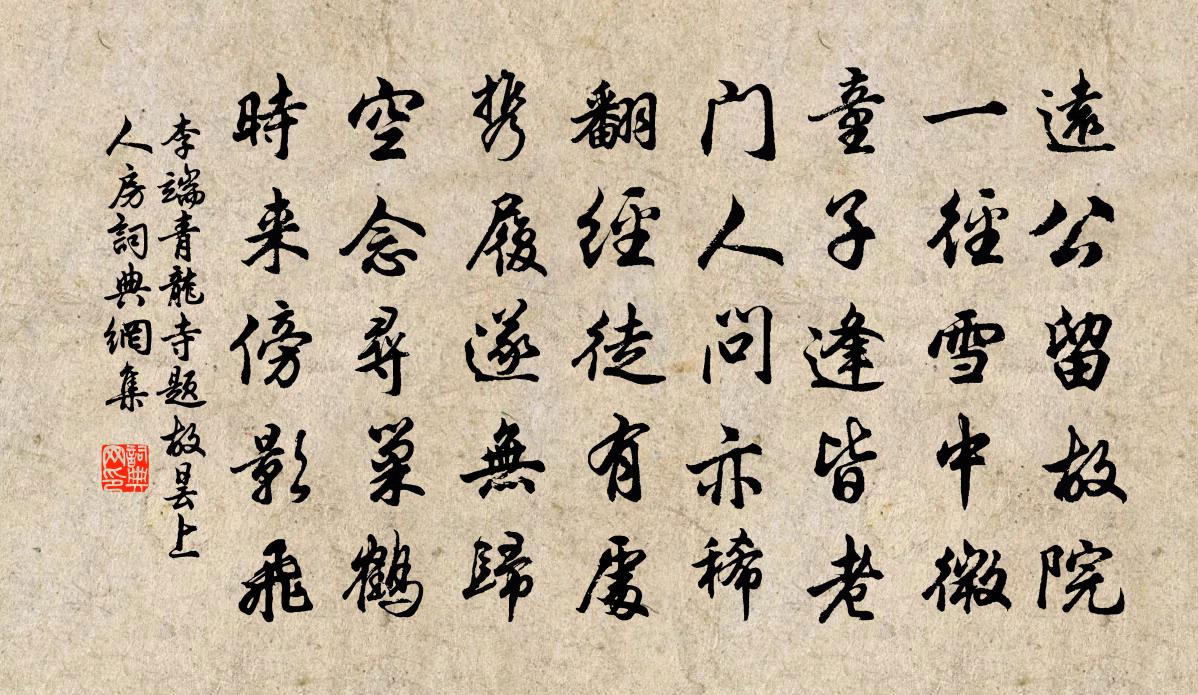 遠公留故院
一徑雪中微
童子逢皆老
门人問亦稀
翻經徒有處
携履遂無歸
空念尋巢鶴
時来傍影飛
李端青龍寺题故昙上
人房詞典網集
詞典
网印